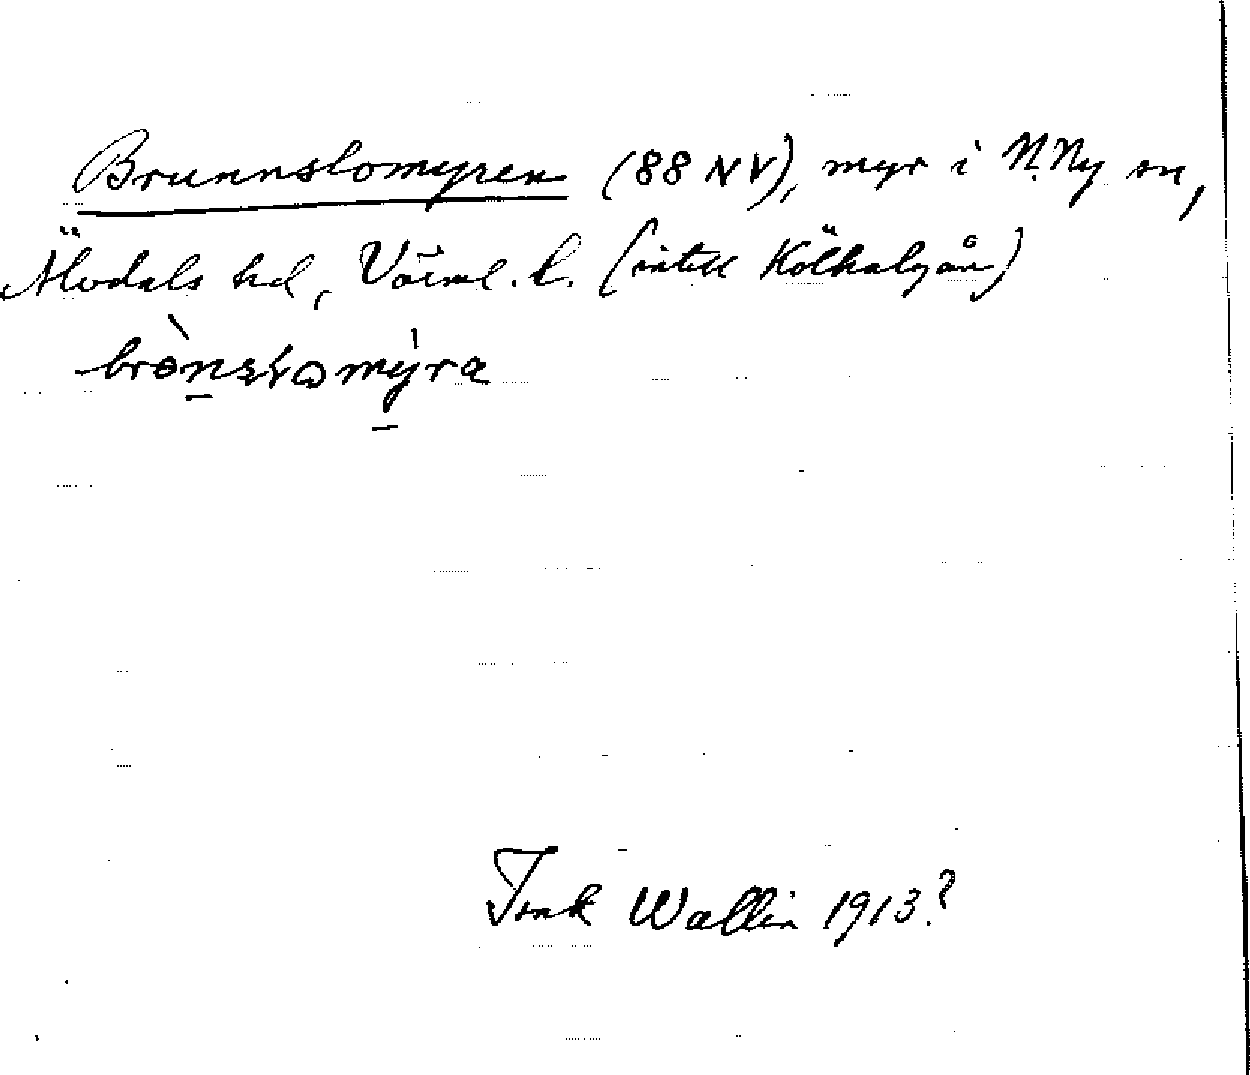 Brunnslomyren (88 NV), myr i N. Ny sn,
Älvdals hd, Värml. l. (intill Kölhalgån)
Wallin 1913?